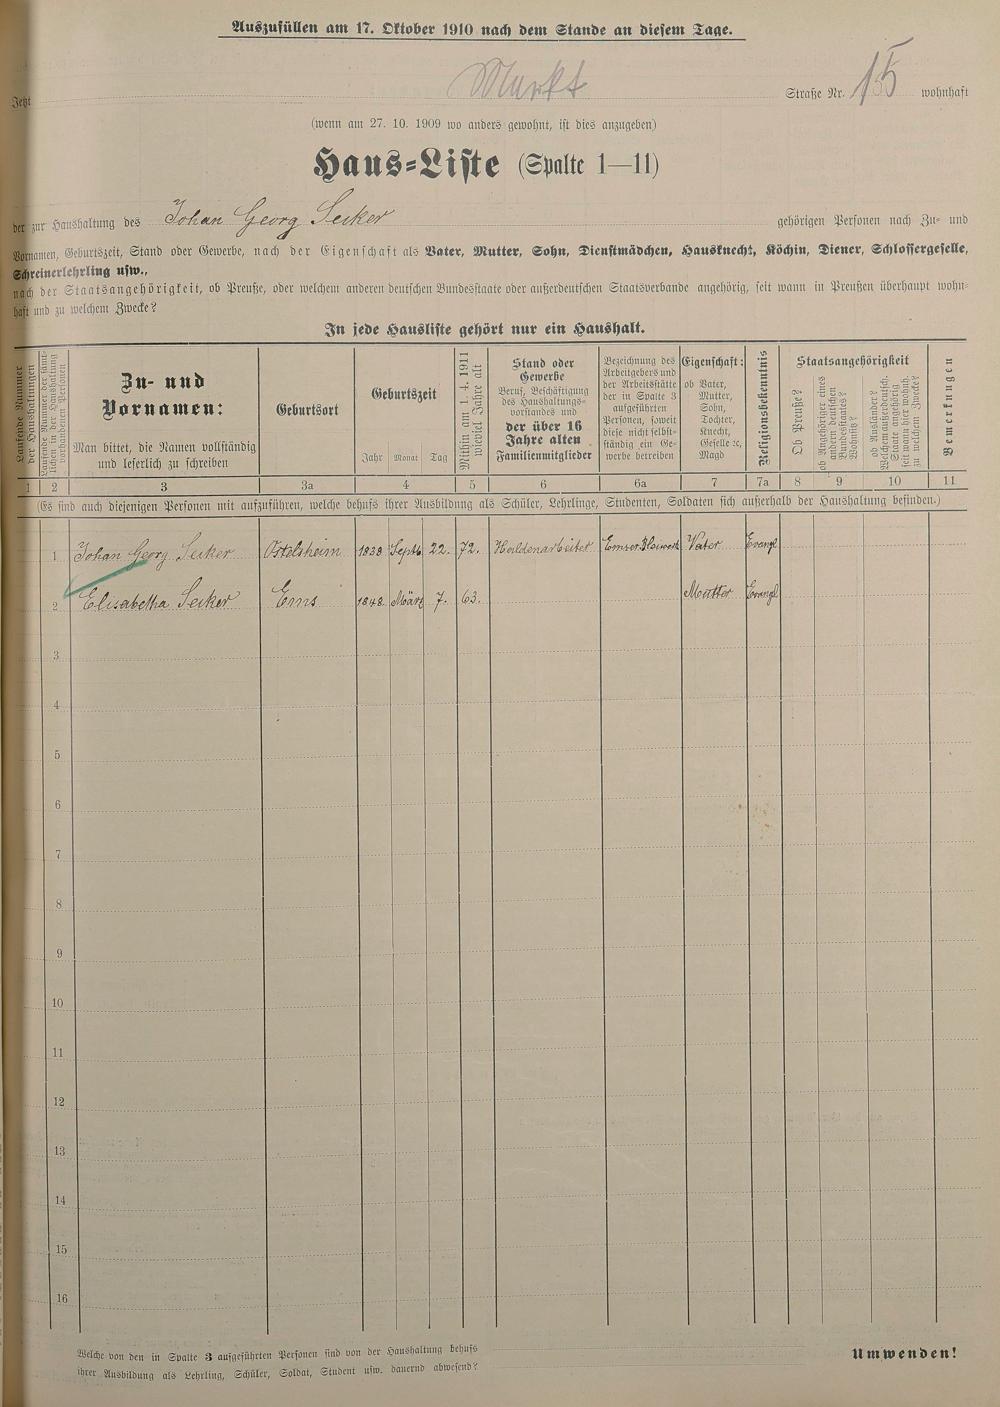 Auszufüllen am 17. Oktober 1910 nach dem Stande an diesem Tage.
Jetzt Markt Straße Nr. 15 wohnhaft
(wenn am 27. 10. 1909 wo anders gewohnt, ist dies anzugeben)
Haus-Liste (Spalte 1—11)
der zur Haushaltung des Johan Georg Secker gehörigen Personen nach Zu- und
Vornamen, Geburtszeit, Stand oder Gewerbe, nach der Eigenschaft als Vater, Mutter, Sohn, Dienstmädchen, Hausknecht, Köchin, Diener, Schlossergeselle,
Schreinerlehrling usw.,
nach der Staatsangehörigkeit, ob Preuße, oder welchem anderen deutschen Bundesstaate oder außerdeutschen Staatsverbande angehörig, seit wann in Preußen überhaupt wohn-
haft und zu welchem Zwecke?
In jede Hausliste gehört nur ein Haushalt.
Laufende Nummer
der Haushaltungen
Laufende Nummer der sämt-
lichen in der Haushaltung
vorhandenen Personen
Zu- und
Vornamen:
Man bittet, die Namen vollständig
und leserlich zu schreiben
Geburtsort
Geburtszeit
Jahr Monat Tag
Mithin am 1. 4. 1911
wieviel Jahre alt
Stand oder
Gewerbe
Beruf, Beschäftigung
des Haushaltungs-
vorstandes und
der über 16
Jahre alten
Familienmitglieder
Bezeichnung des
Arbeitgebers und
der Arbeitsstätte
der in Spalte 3
aufgeführten
Personen, soweit
diese nicht selbst-
ständig ein Ge-
werbe betreiben
Eigenschaft:
ob Vater,
Mutter,
Sohn,
Tochter,
Knecht,
Geselle 2c,
Magd
Religionsbekenntnis
Staatsangehörigkeit
Ob Preuße?
ob Angehöriger eines
andern deutschen
Bundesstaates?
Wohnsitz?
ob Ausländer?
Welchem außerdeutsch.
Staate angehörig
seit wann hier wohnh.
zu welchem Zwecke?
Bemerkungen
1 2 3 3a 4 5 6 6a 7 7a 8 9 10 11
(Es sind auch diejenigen Personen mit aufzuführen, welche behufs ihrer Ausbildung als Schüler, Lehrlinge, Studenten, Soldaten sich außerhalb der Haushaltung befinden.)
1 Johan Georg Secker Ostelsheim 1838 Septb 22. 72. Haldenarbeiter Emser Vater Evangl
2 Elisabetha Secker Ems 1848 März 7. 63. Mutter Evangl
3
4
5
6
7
8
9
10
11
12
13
14
15
16
Welche von den in Spalte 3 aufgeführten Personen sind von der Haushaltung behufs
ihrer Ausbildung als Lehrling, Schüler, Soldat, Student usw. dauernd abwesend?
Umwenden!